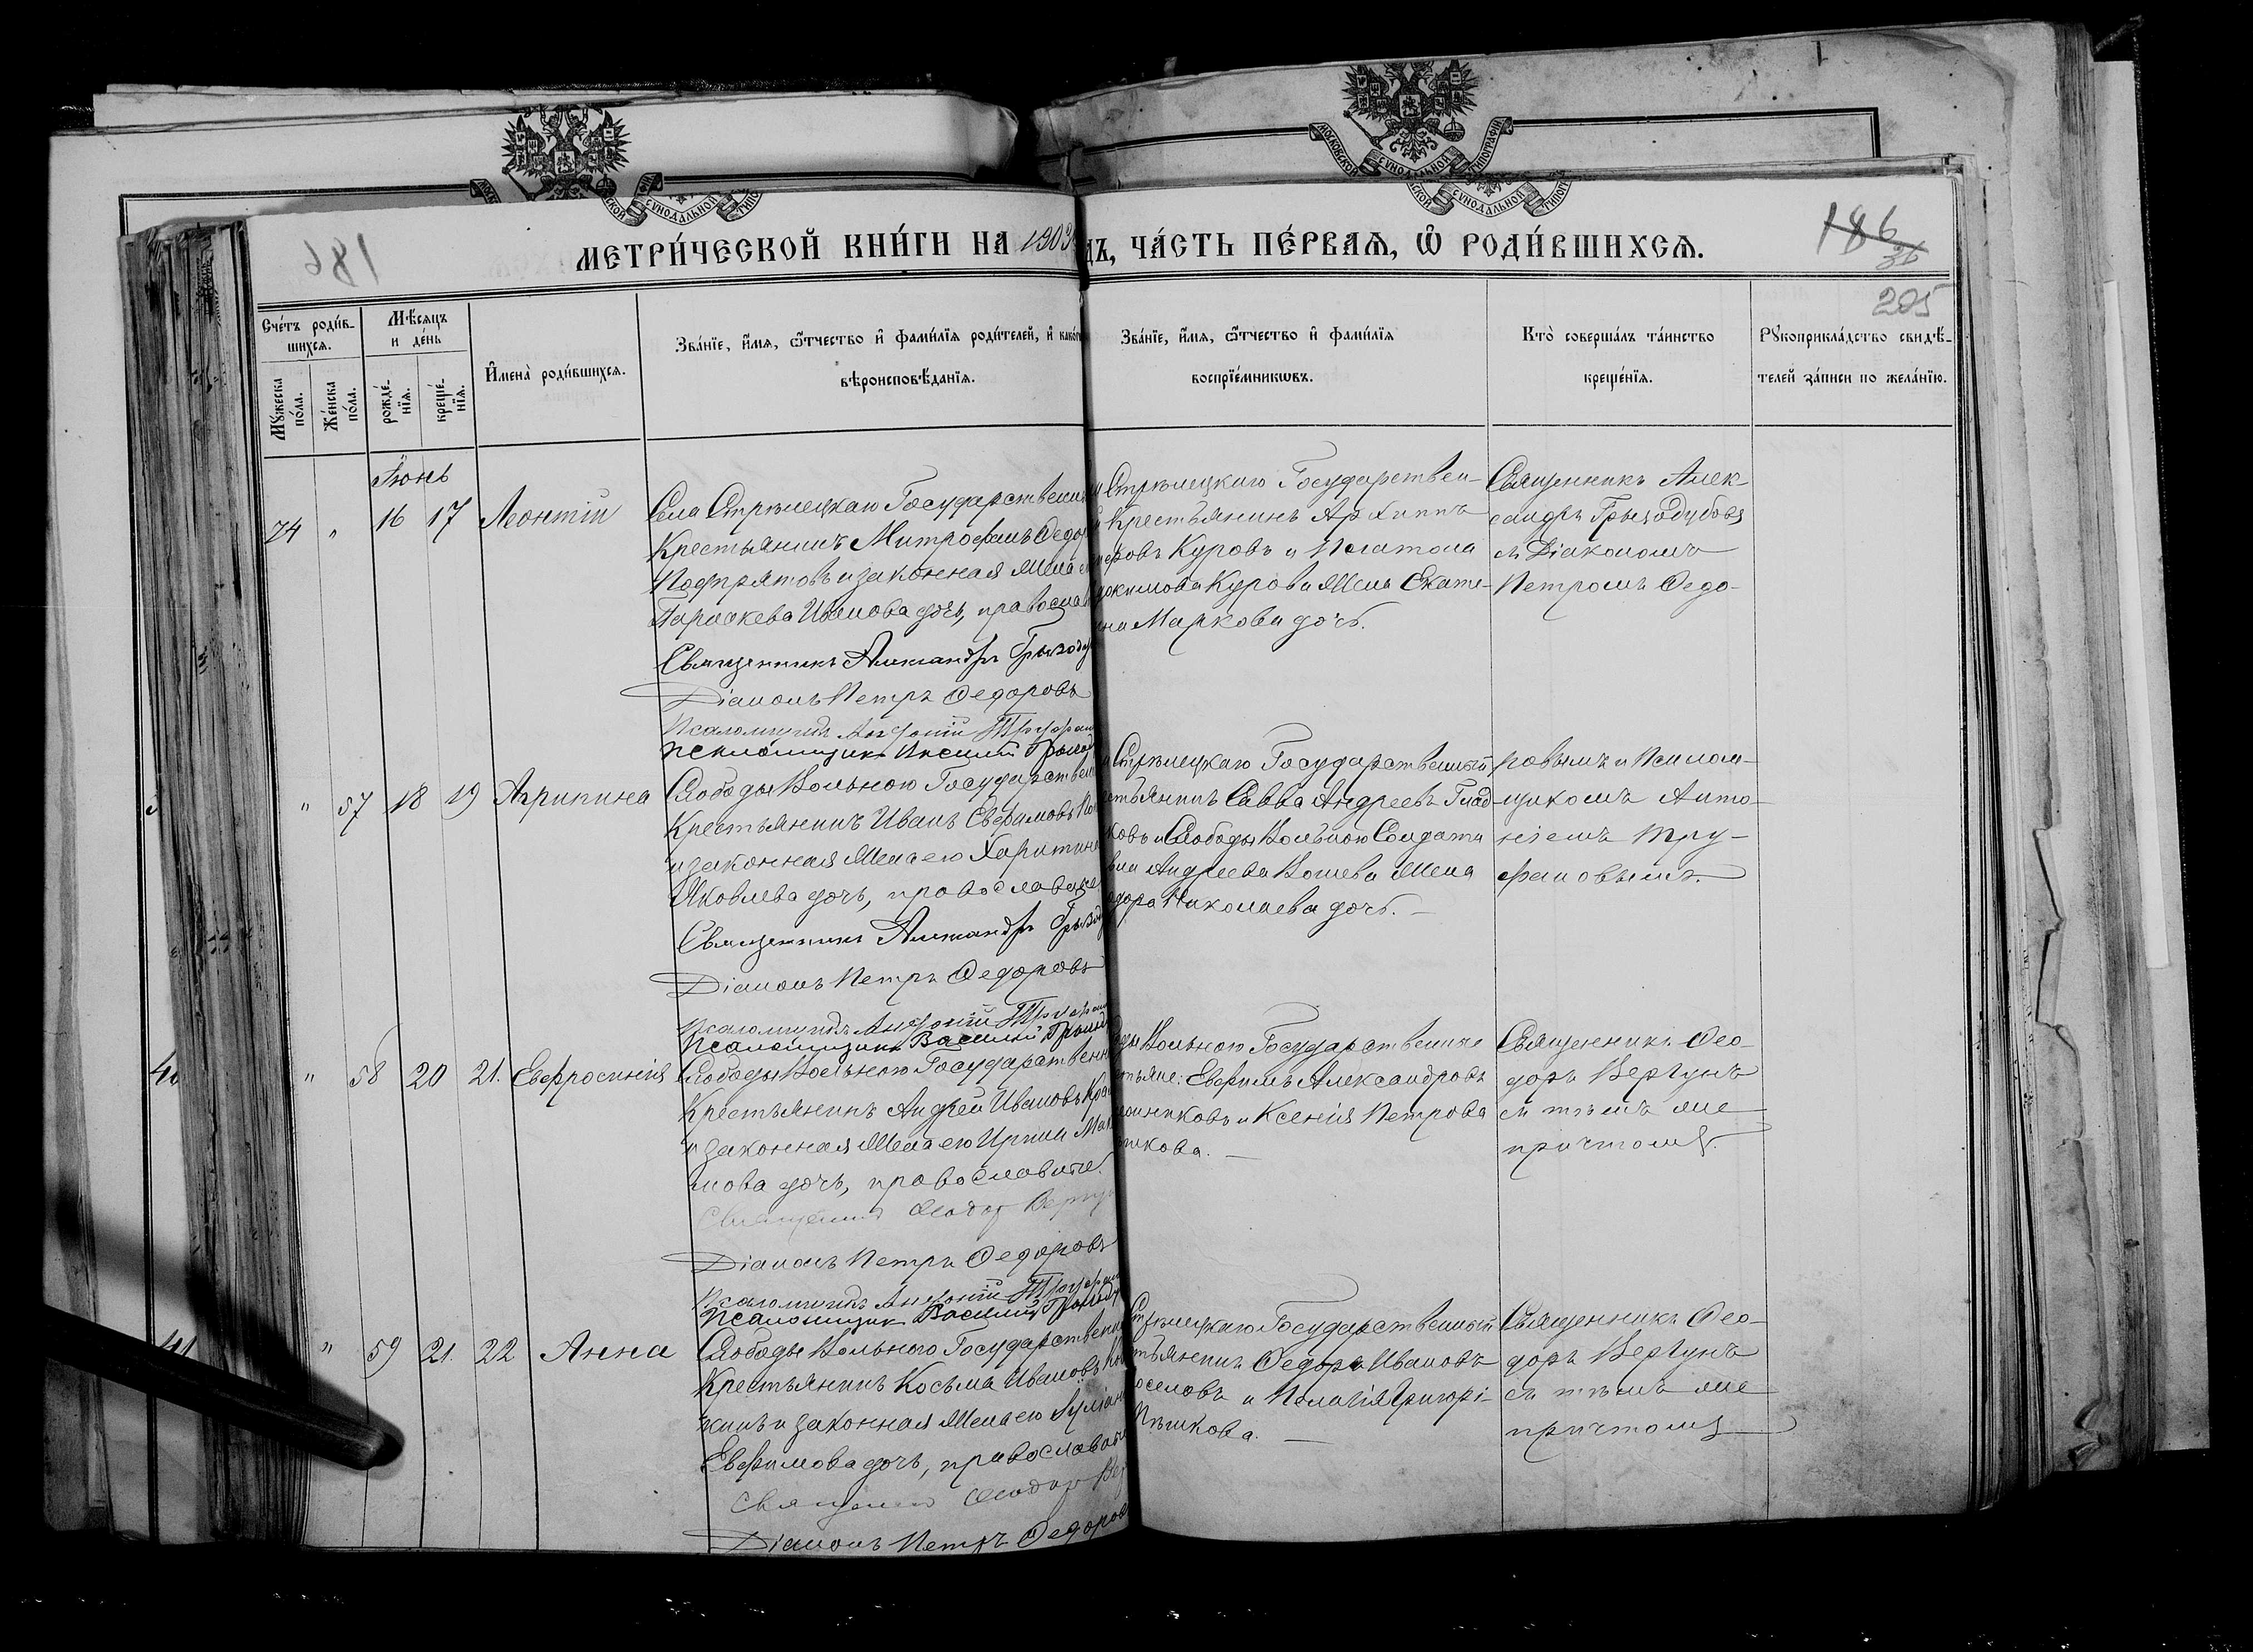 МЕТРИ́ЧЕСКОЙ КНИ́ГИ НА 1903 ДЪ, ЧА́СТЬ ПЕ́РВАѦ, Ѡ҆ РОДИ́ВШИХСѦ.
186
186
36
205
Сче́тъ роди́в-
шихсѧ.
Мꙋ́жеска по́ла.
Же́нска по́ла.
Мѣ́сѧцъ
и де́нь
рожде́-
нїѧ.
креще́-
нїѧ.
И҆мена̀ роди́вшихсѧ.
Зва́нїе, и҆́мѧ, ѻ҆́тчество и҆ фами́лїѧ роди́телей, и҆ како́г
вѣроисповѣ́данїѧ.
Зва́нїе, и҆́мѧ, ѻ҆́тчество и҆ фами́лїѧ
воспрїе́мникѡвъ.
Кто̀ соверша́лъ та́инство
креще́нїѧ.
Рꙋкоприкла́дство свидѣ́-
телей за́писи по жела́нїю.
Іюнь
74 " 16 17 Леонтій
Села Стрѣлецкаго Государствен
Крестьянинъ Митрофанъ Федо
и законная Жена
Параскева Иванова дочь, православ
Священникъ Александръ Грызоду
Діаконъ Петръ Федоровъ
Псаломщикъ Антоній Труфан
Псаломщикъ Василій
Стрѣлецкаго Государствен-
Крестьянинъ Архипъ
Куровъ и Платона
докимова Курова Жена Екате-
Маркова дочь.
Священникъ Алек-
сандръ Грызодубовъ
съ Діакономъ
Петромъ Федо-
" 57 18 19 Агрипина
Слободы Вольною Государствен
Крестьянинъ Иванъ Евфимовъ
и законная Жена его Харитина
Яковлева дочь, православные
Священникъ Александръ Грызод
Діаконъ Петръ Федоровъ
Псаломщикъ Антоній Труфан
Псаломщикъ Василій
Стрѣлецкаго Государственный
стьянинъ Савва Андреевъ Глад-
ковъ и Слободы Вольною Солдата
Андреева Жена
Николаева дочь. —
ровымъ и Псалом-
щикомъ Анто-
ніемъ Тру-
фановымъ.
" 58 20 21. Евфросинія
Слободы Вольною Государствен
Крестьянинъ Андрей Ивановъ
и законная Жена его Ирина Мак
мова дочь, православные.
Священникъ Феодор Вергун
Діаконъ Петръ Федоровъ
Псаломщикъ Антоній Труфан
Псаломщик Василій
Вольною Государственные
стьяне: Евфимъ Александровъ
и Ксенія Петрова
Священникъ Фео-
доръ Вергунъ
съ тѣмъ же
причтомъ.
" 59 21. 22 Анна
Слободы Вольного Государствен
Крестьянинъ Косьма Ивановъ
и законная Жена его Іуліан
Евфимова дочь, православны
Священник Феодор Вер
Діаконъ Петръ Федоров
Стрѣлецкаго Государственный
стьянинъ Федоръ Ивановъ
и Пелагія Григорі-
Пѣшкова. —
Священникъ Фео-
доръ Вергунъ
съ тѣмъ же
причтомъ